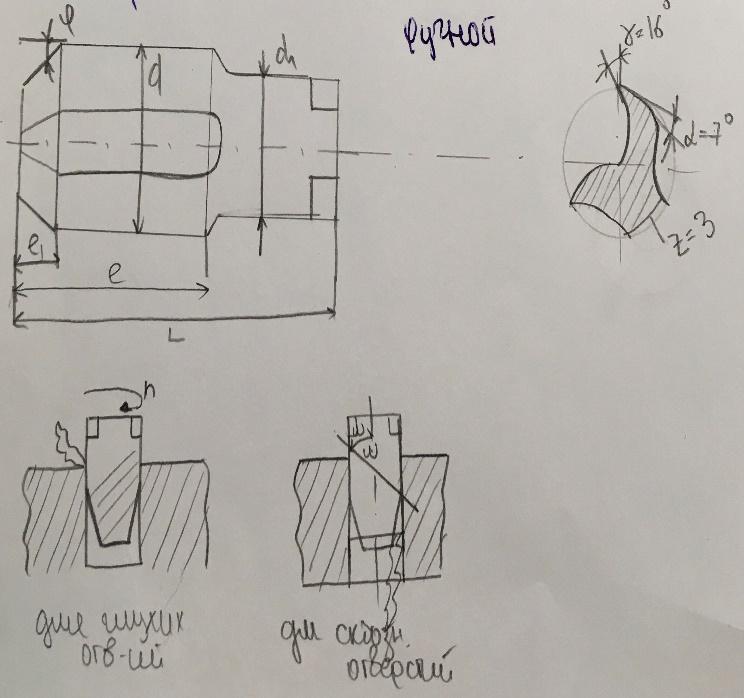 ручной
φ
d
d₁
γ=16°
α=7°
z=3
l₁
l
L
n
ω
ω
для глухих
отв-ий
для сквозн.
отверстий